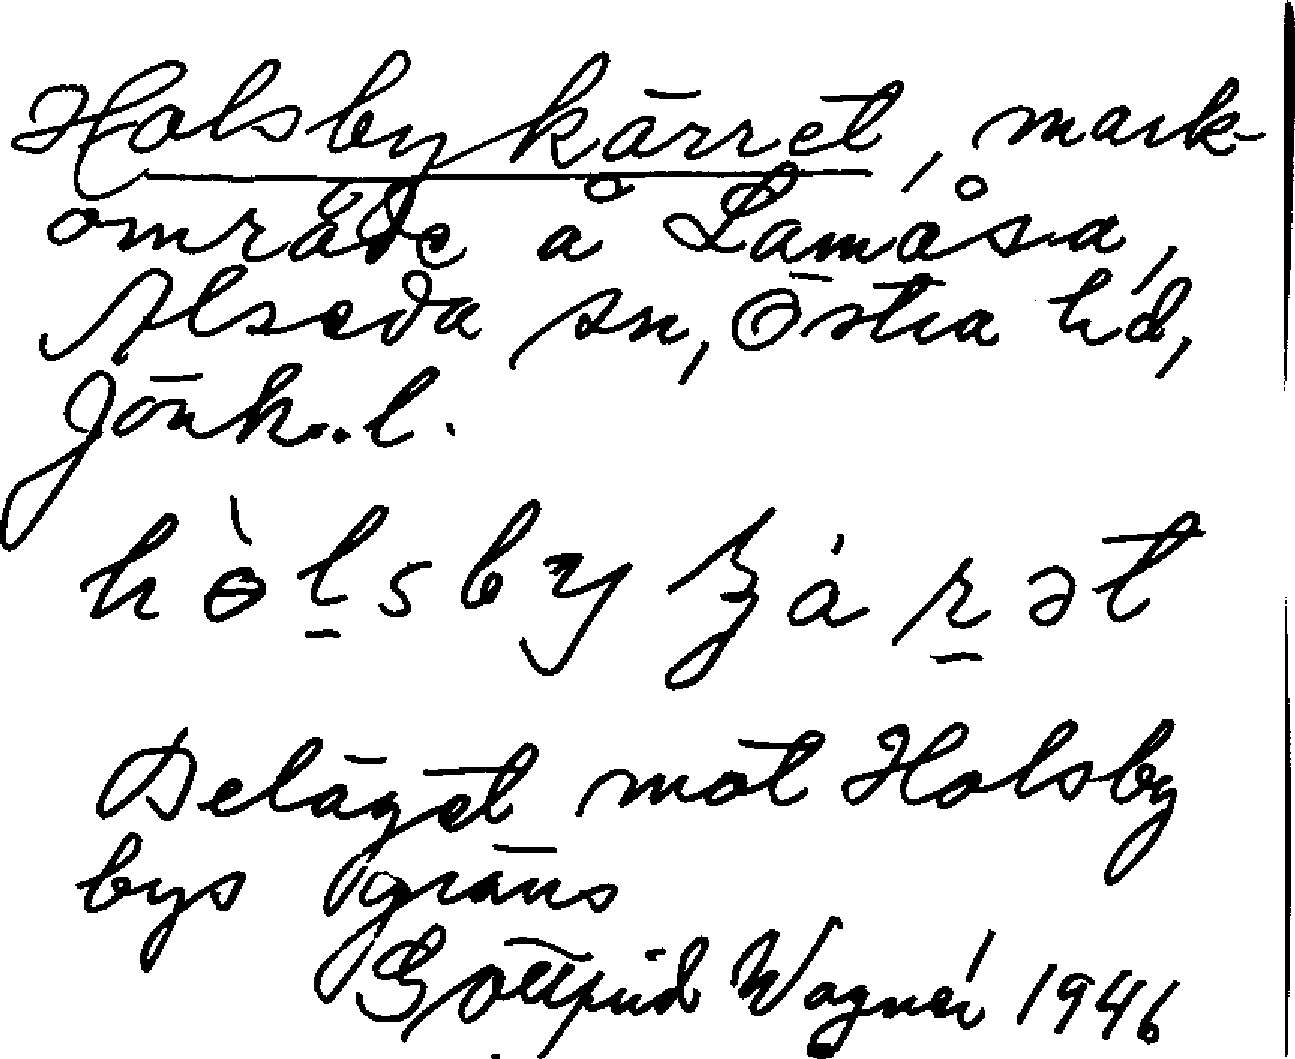 Holsbykärret, mark-
område å Lamåsa,
Alseda sn, Östra hd,
Jönk. l.
hòlsby ʒárət
Beläget mot Holsby
bys gräns
Gottfrid Wagnér 1946